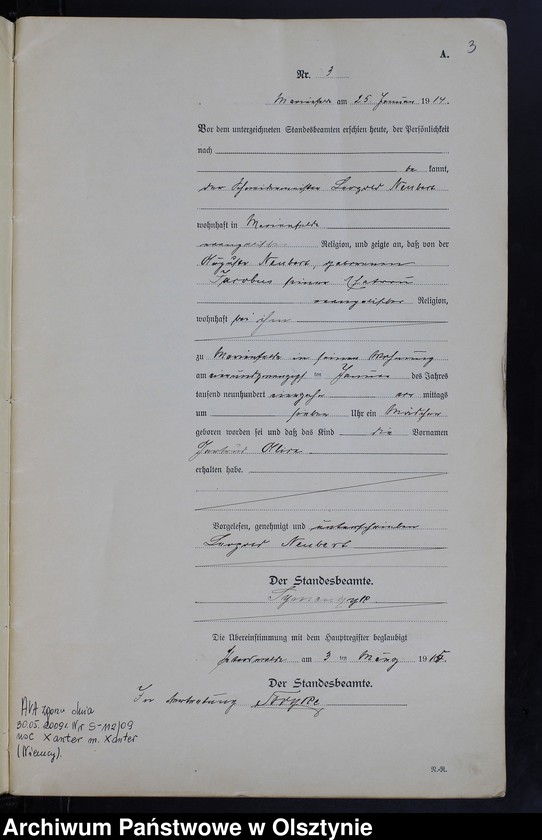 3
A.
Nr. 3
am 25 Januar 1914.
Vor dem unterzeichneten Standesbeamten erschien heute, der Persönlichkeit
nach
be kannt,
der Leopold Neubert
wohnhaft in Marienfelde
evangelischer Religion, und zeigte an, daß von der
Neubert, geborenen
Jacobus seiner Ehefrau
evangelischer Religion,
wohnhaft bei ihm
zu Marienfelde in seiner Wohnung
am ten Januar des Jahres
tausend neunhundert vierzehn vor mittags
um sieben Uhr ein Mädchen
geboren worden sei und daß das Kind die Vornamen
Gertrud
erhalten habe.
Vorgelesen, genehmigt und unterschrieben
Leopold Neubert
Der Standesbeamte.
Die Übereinstimmung mit dem Hauptregister beglaubigt
am 3 ten März 1915.
Der Standesbeamte.
In Vertretung
Akt zgonu dnia
30.05.2009r. Nr S-112/09
USC Xanten m. Xanten
(Niemcy).
N.-R.
Archiwum Państwowe w Olsztynie